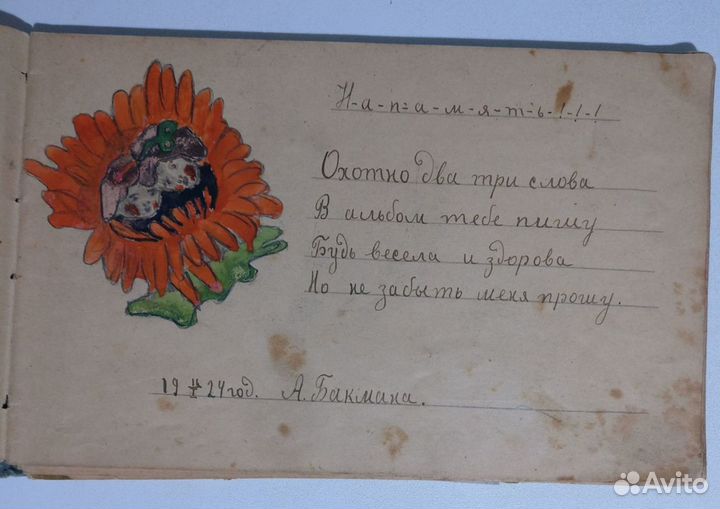 Н-а-п-а-м-я-т-ь-!-!-!
Охотно два три слова
В альбом тебе пишу
Будь весела и здорова
Но не забыть меня прошу.
19 24 год. А. Бакмана.
Avito